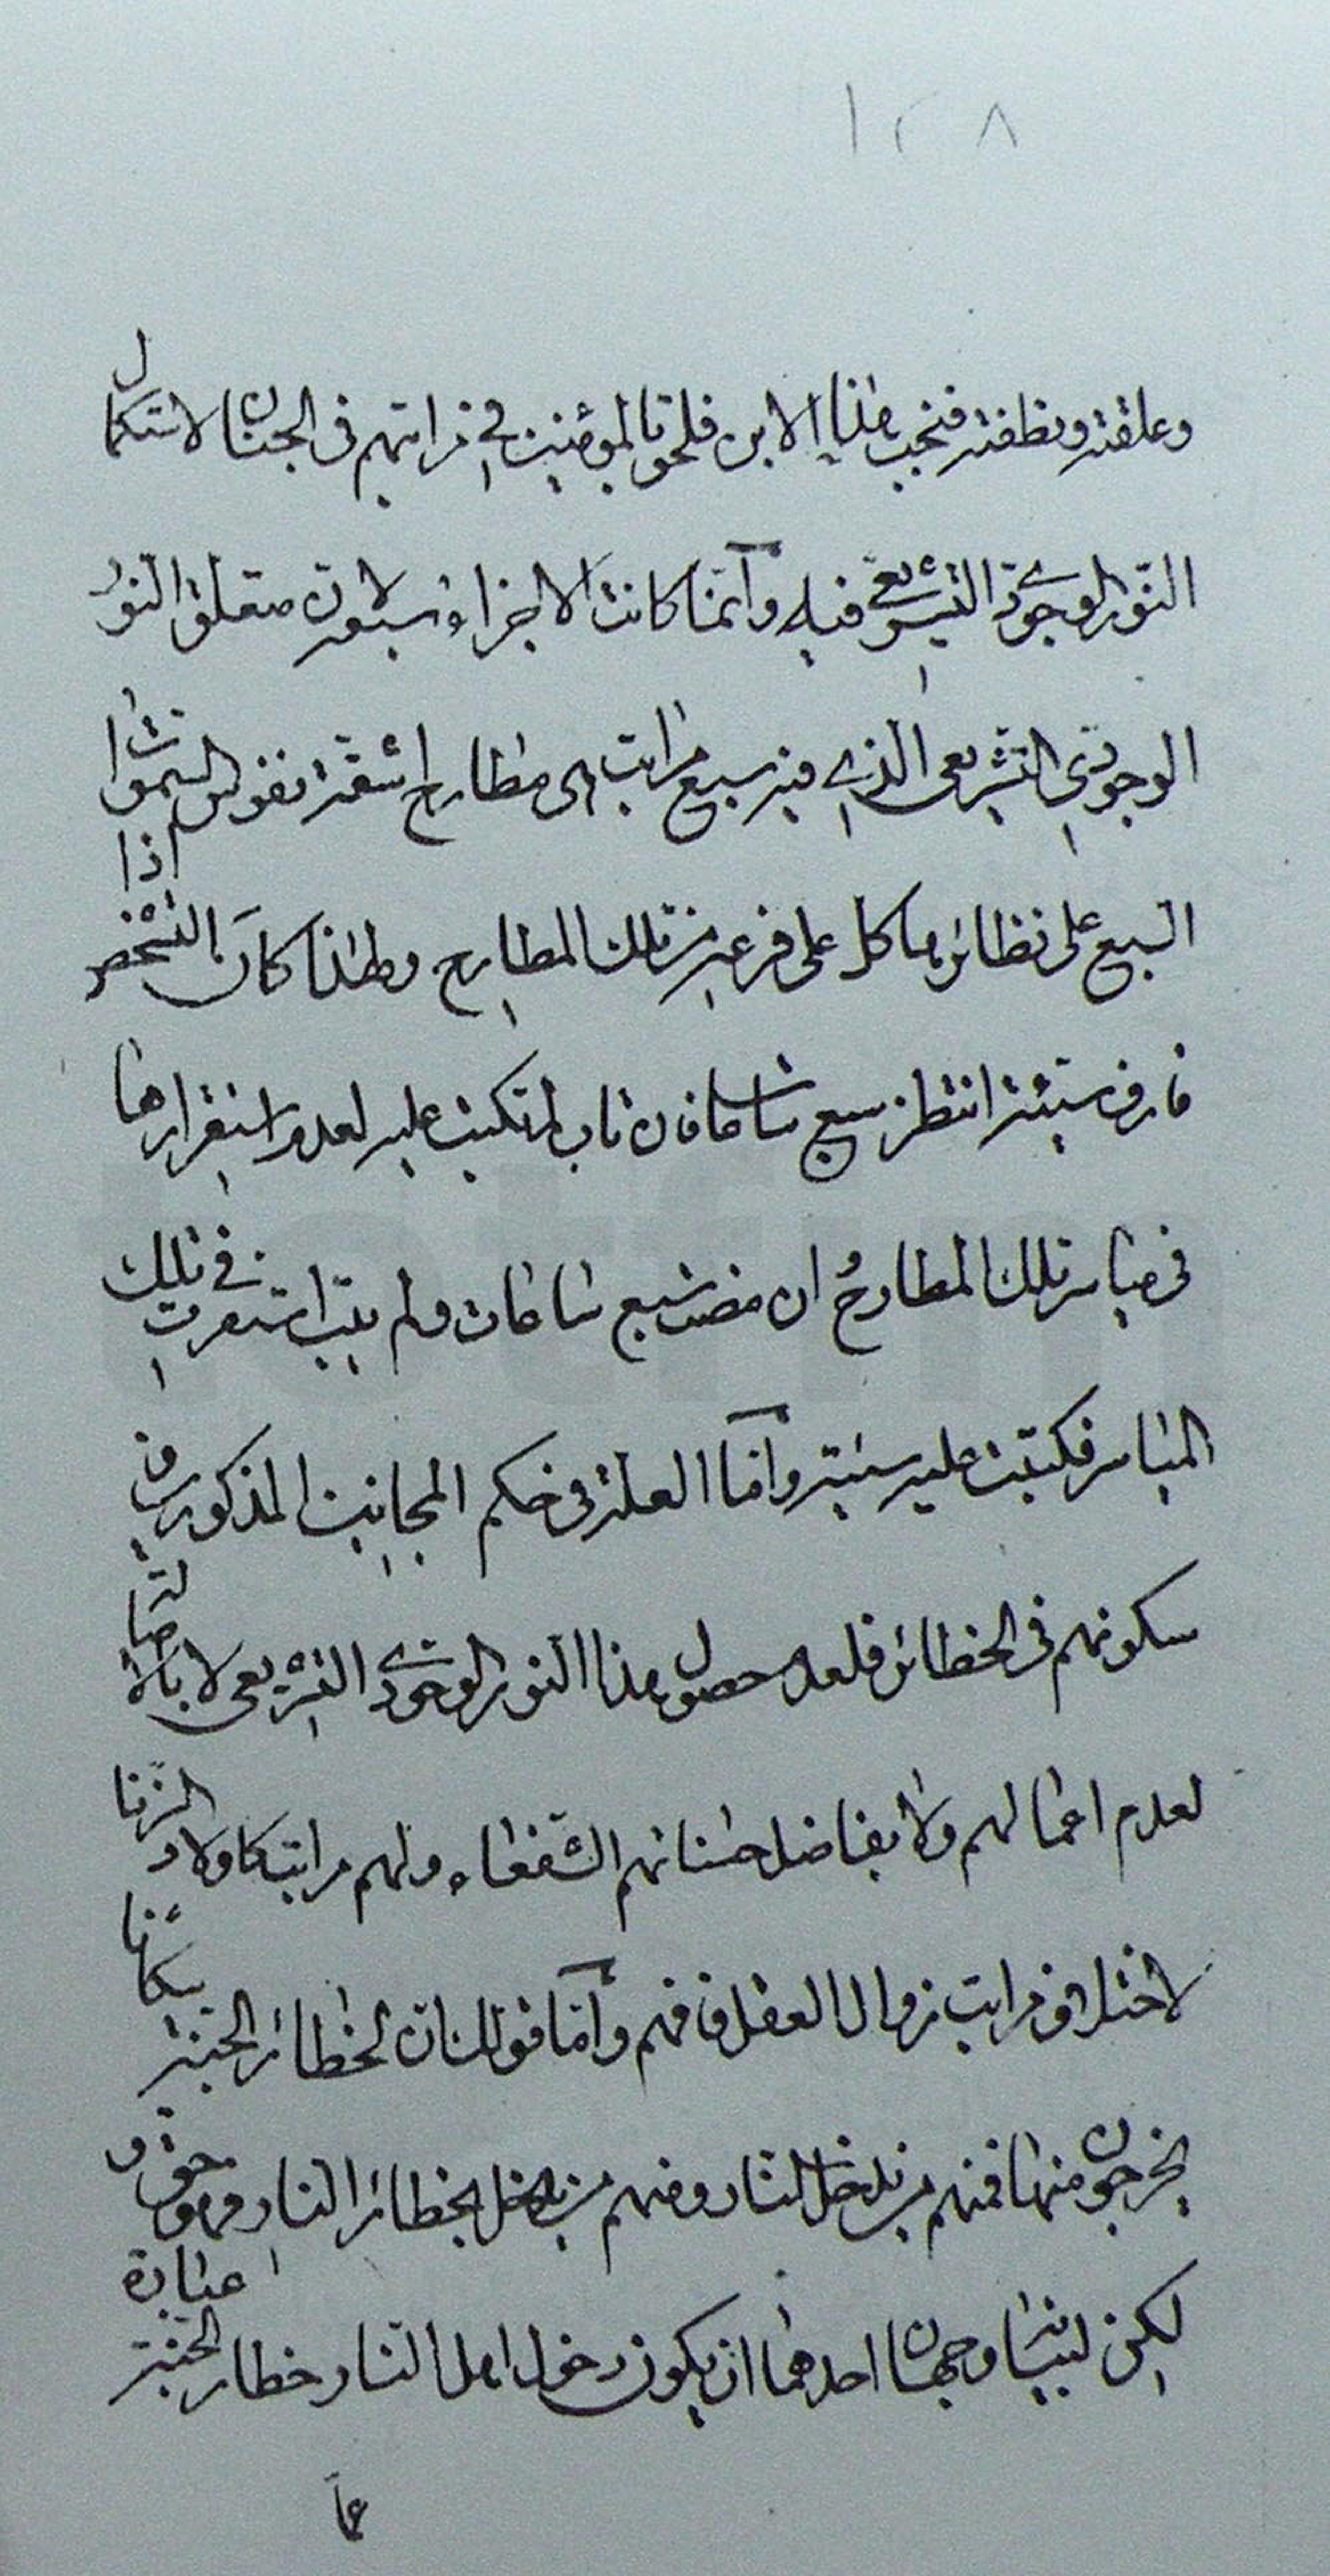 ١٢٨
وعلقته ونطفته فنجب هذا الابن فلحق بالمؤمنين في مراتبهم في الجنان لاستكمال
النور الوجودي التشريعي فيه وانما كانت الاجزاء سبعة لان متعلق النور
الوجودي التشريعي الذي فيه سبع مراتب هي مطارح اشعة نفوس السموات
السبع على نظائرها كل على فرعه من تلك المطارح ولهذا كان الشخص اذا
قارف سيئة انتظر سبع ساعات فان تاب لم تكتب عليه لعدم استقرارها
في مياسر تلك المطارح ان مضت سبع ساعات ولم يتب استقرت في تلك
المياسر فكتبت عليه سيئة واما العلة في حكم المجانين المذكورين في
سكونهم في الحظائر فلعدم حصول هذا النور الوجودي التشريعي لا بالاصالة
لعدم اعمالهم ولا بفاضل حسناتهم الشفعاء ولهم مراتب كاولاد الزنا
لاختلاف مراتب زوال العقل فافهم واما قولك ان لحظائر الجنة سكانا
يخرجون منها فمنهم من يدخل النار ومنهم من يدخل حظائر النار فهو حق و
لكن لبيانه وجهان احدهما ان يكون دخول اهل النار حظائر الجنة عبارة
عما